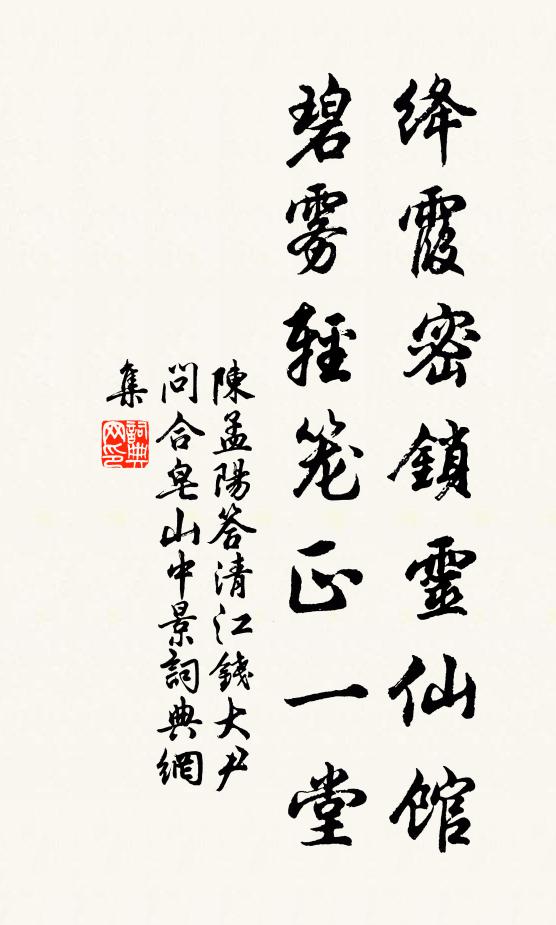 絳霞密鎖靈仙館
碧霧輕笼正一堂
陳孟陽答清江錢大尹
問合皂山中景詞典網
集
詞典网印